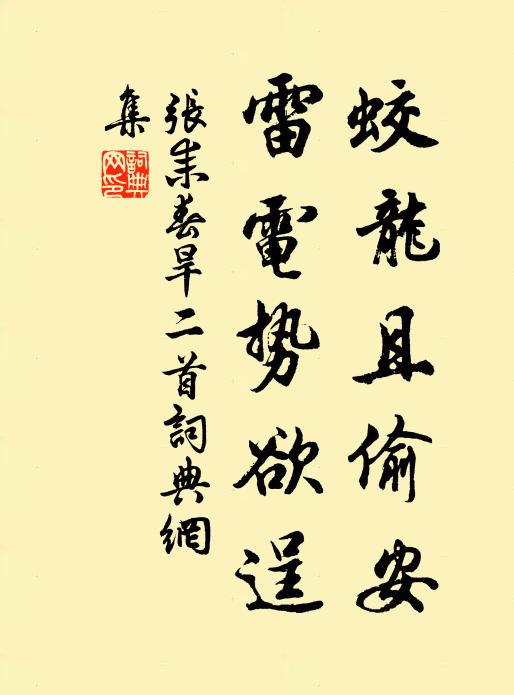 蛟龍且偷安
雷電勢欲逞
張耒春旱二首詞典網
集
詞典
网印